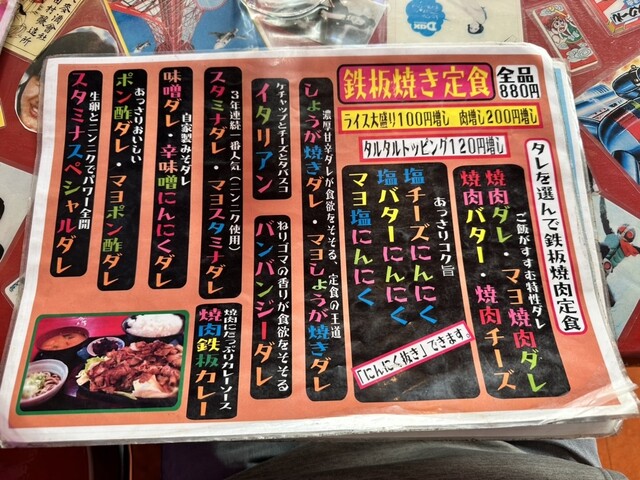 鉄板焼き定食
全品
880円
ライス大盛り100円増し 肉増し200円増し
タルタルトッピング120円増し
タレを選んで鉄板焼肉定食
ご飯がすすむ特性ダレ
焼肉ダレ・マヨ焼肉ダレ
焼肉バター・焼肉チーズ
あっさりコク旨
塩チーズにんにく
塩バターにんにく
マヨ塩にんにく
「にんにく抜き」できます。
濃厚甘辛ダレが食欲をそそる、定食の王道
しょうが焼きダレ・マヨしょうが焼きダレ
ケチャップとチーズとタバスコ
イタリアン
ねりゴマの香りが食欲をそそる
バンバンジーダレ
3年連続一番人気(ニンニク使用)
スタミナダレ・マヨスタミナダレ
自家製みそダレ
味噌ダレ・辛味噌にんにくダレ
あっさりおいしい
ポン酢ダレ・マヨポン酢ダレ
生卵とニンニクでパワー全開
スタミナスペシャルダレ
焼肉にたっぷりカレーソース
焼肉鉄板カレー